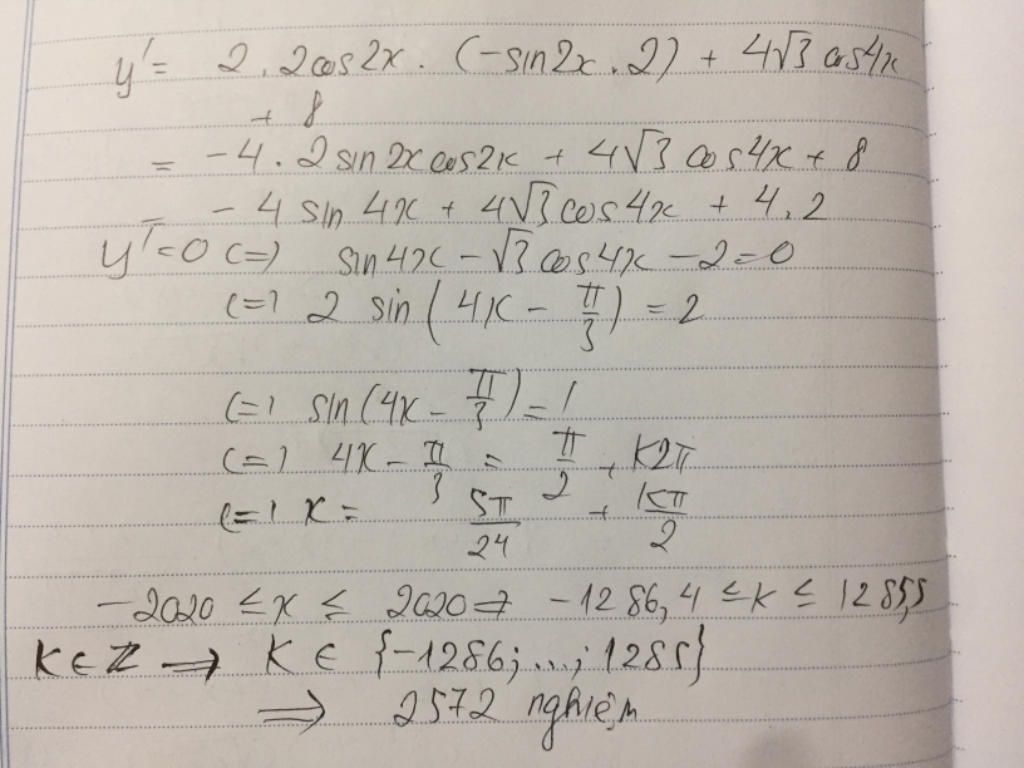 y' = 2.2cos2x.(-sin2x.2) + 4√3 cos4x
+ 8
= -4.2sin2xcos2x + 4√3 cos4x + 8
= -4 sin4x + 4√3 cos4x + 4.2
y'=0 (=) sin4x - √3 cos4x - 2 = 0
(=) 2 sin(4x - π/3) = 2
(=) sin(4x - π/3) = 1
(=) 4x - π/3 = π/2 + k2π
(=) x = 5π/24 + kπ/2
-2020 ≤ x ≤ 2020 => -1286,4 ≤ k ≤ 1285,5
K ∈ Z => K ∈ {-1286;...;1285}
=> 2572 nghiệm